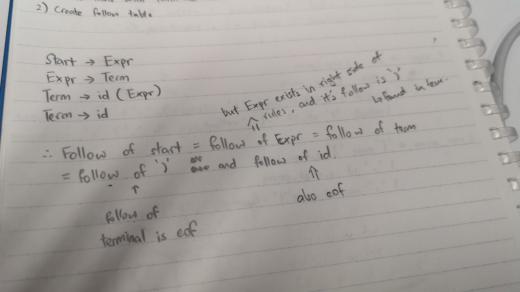 2) Create follow table
Start → Expr
Expr → Term
Term → id (Expr)
Term → id
but Expr exists in right side of
rules, and it's follow is ')'
to found in term.
∴ Follow of start = follow of Expr = follow of term
= follow of ')' and follow of id.
↑ ⇑
follow of also eof
terminal is eof